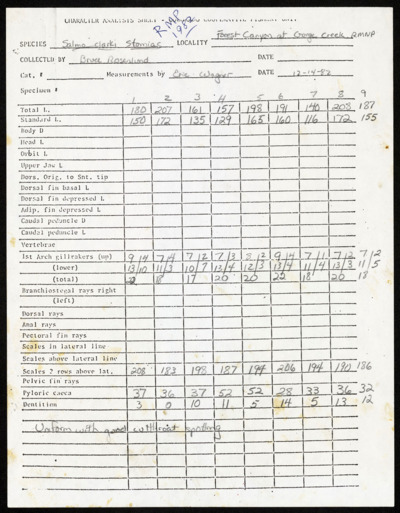 CHARACTER ANALYSIS SHEET COOPERATIVE FISHERY UNIT
RMP
1982
SPECIES Salmo clarki Stomias LOCALITY Forest Canyon at Gorge Creek RMNP
COLLECTED BY Bruce Rosenlund DATE
Cat. # Measurements by Eric Wagner DATE 12-14-82
Specimen #
1 2 3 4 5 6 7 8 9
Total L. 180 207 161 157 198 191 140 208 187
Standard L. 150 172 135 129 165 160 116 172 155
Body D
Head L
Orbit L
Upper Jaw L
Dors. Orig. to Snt. tip
Dorsal fin basal L
Dorsal fin depressed L
Adip. fin depressed L
Caudal peduncle D
Caudal peduncle L
Vertebrae
1st Arch gillrakers (up) 9/4 7/4 7/2 7/3 8/2 9/4 7/1 7/2 7/2
(lower) 13/10 11/3 10/7 13/4 12/3 13/4 11/4 13/3 11/5
(total) 22 18 17 20 20 22 18 20 18
Branchiostegal rays right
(left)
Dorsal rays
Anal rays
Pectoral fin rays
Scales in lateral line
Scales above lateral line
Scales 2 rows above lat. 208 183 198 187 194 206 194 190 186
Pelvic fin rays
Pyloric caeca 37 36 37 52 52 28 33 36 32
Dentition 3 0 10 11 5 14 5 13 12
Uniform with good cutthroat spotting